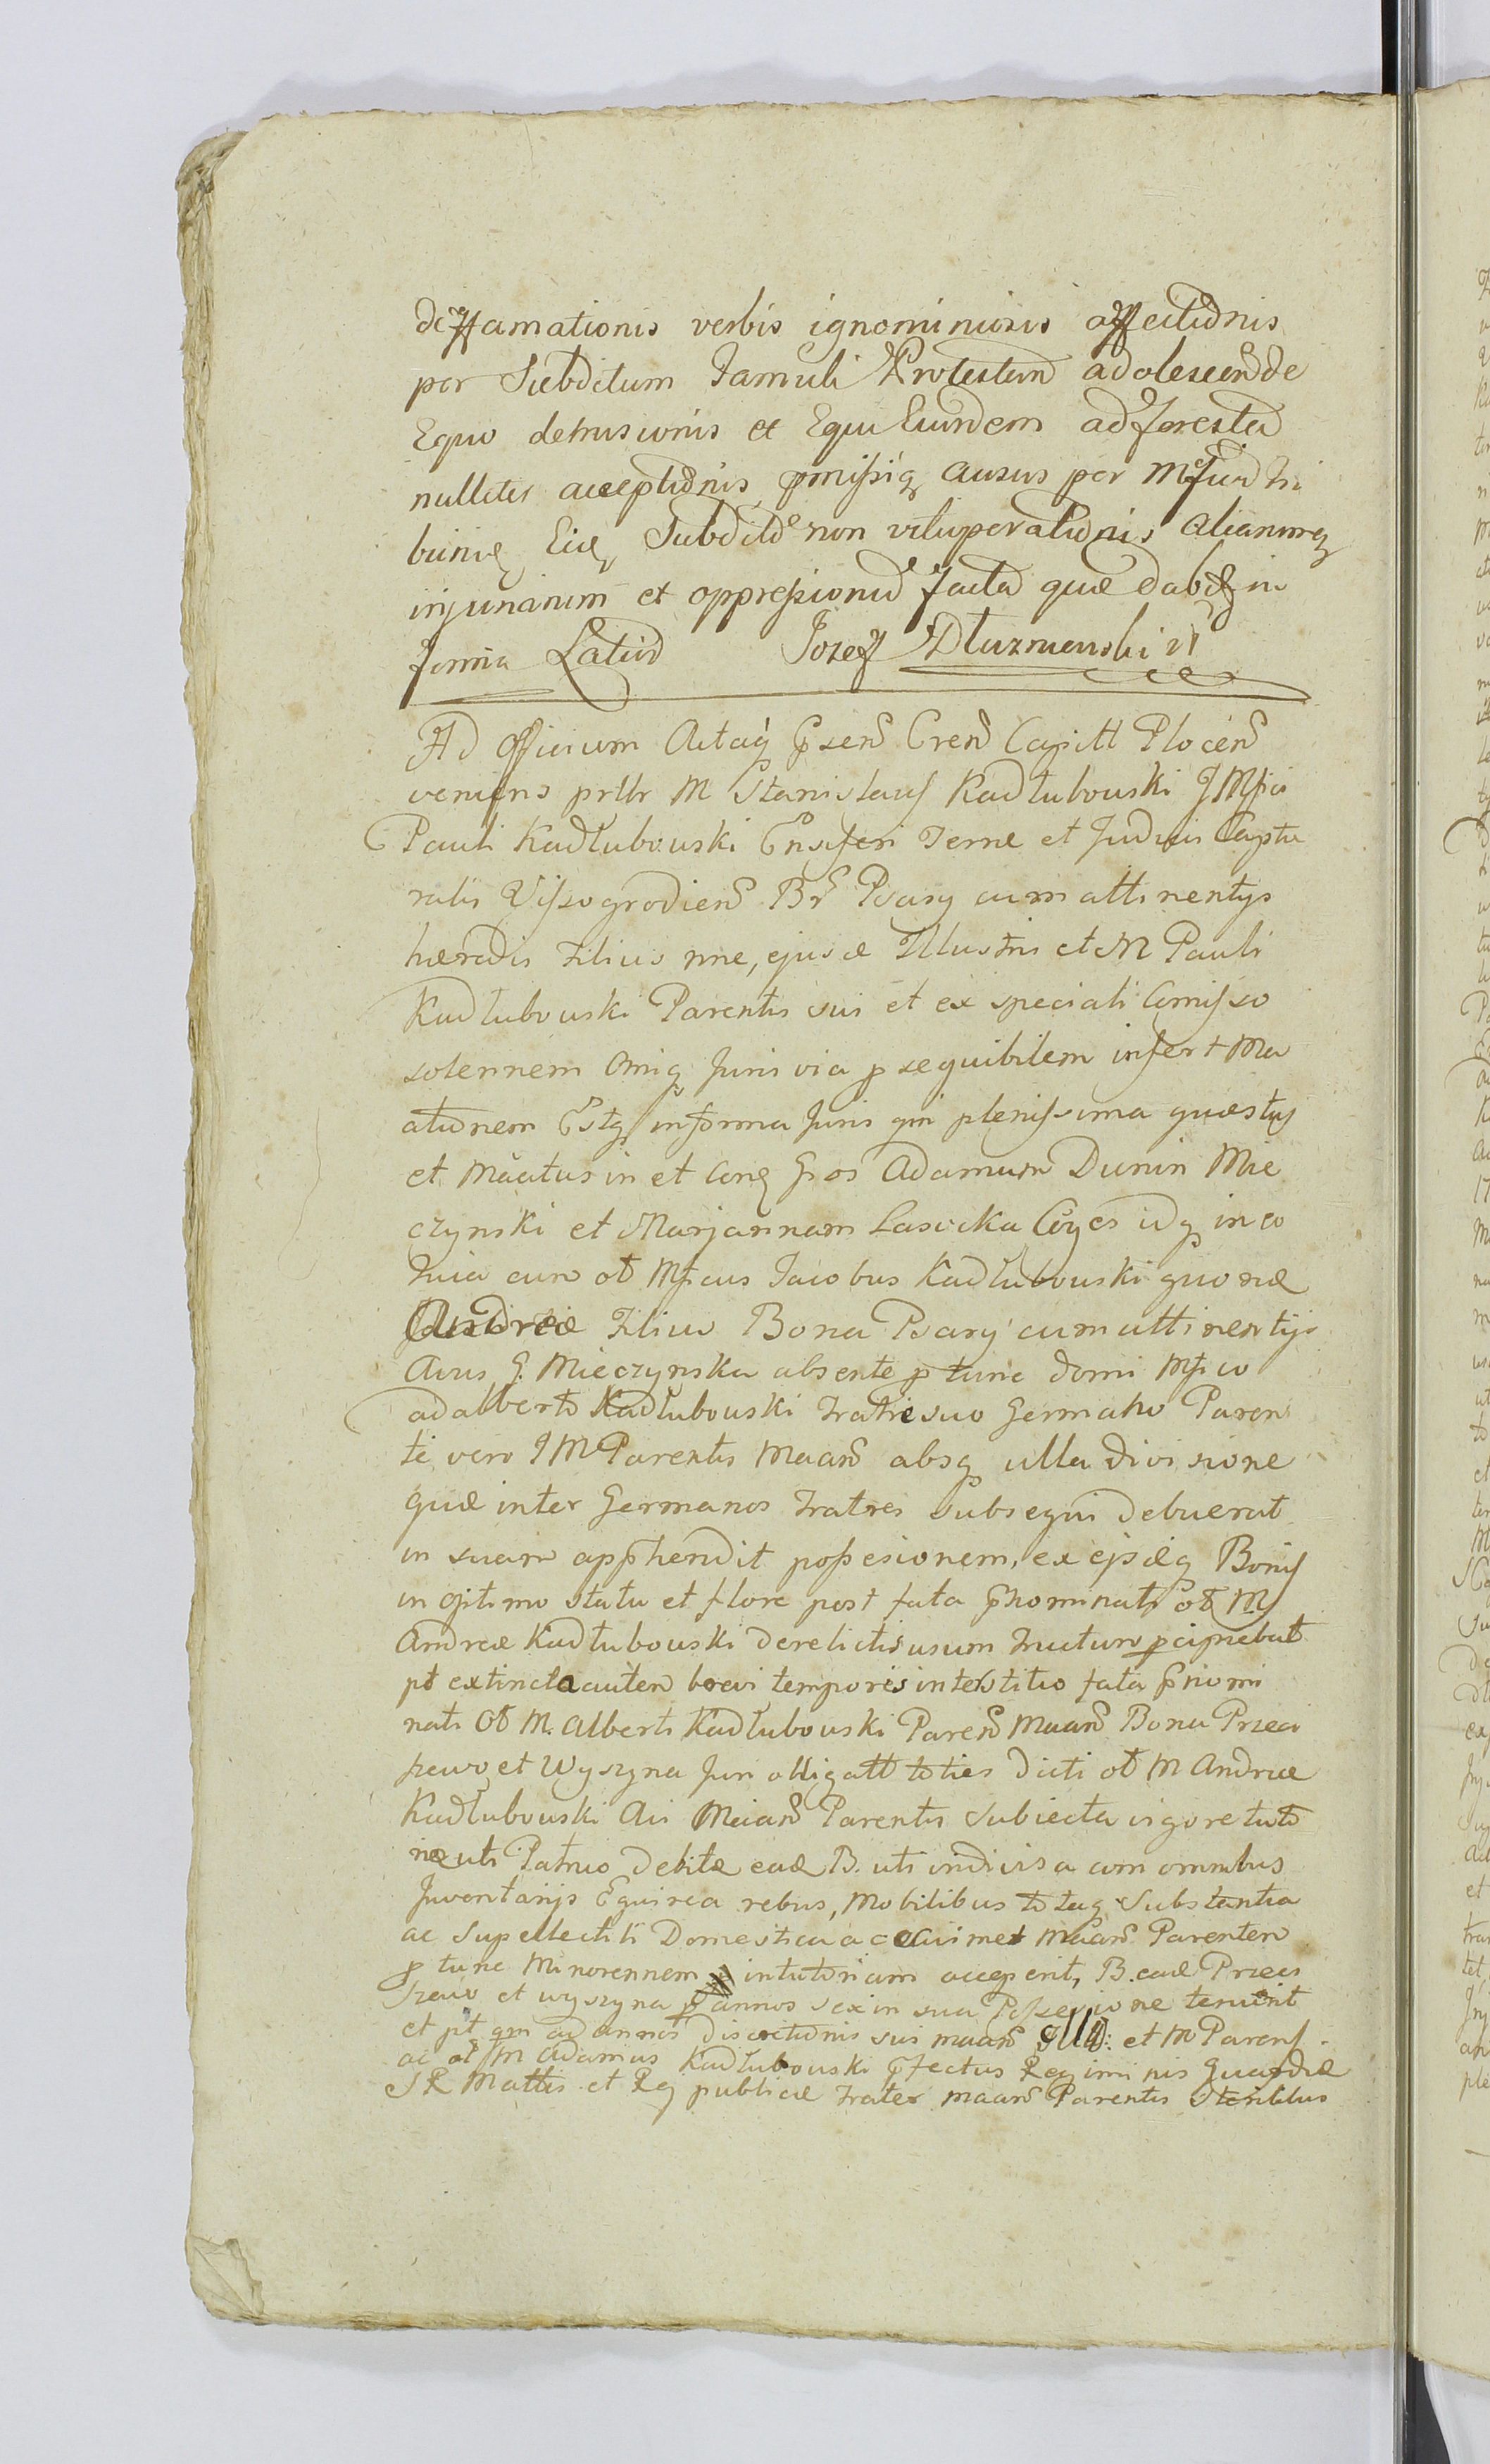 deffamationis verbis ignominiosis affectionis
per Subditum Famuli Protestan adolescen de
Equo detrusionis et Equi Eiusdem ad foresta
nulliter acceptionis pmissiq ausus per Mfum Tri
buniq Eiq Subdito non vituperationis alianumq
injurianum et oppressionu facta quæ dabitq in
forma Latio Jozef Dłuzniewski
Ad Officium Actaq psen Cren Capitt Plocen
veniens prttr M Stanislaus Kadłubowski J Mfici
Pauli Kadłubowski Ensiferi Terræ et Judicis Captu
ralis Vissogrodien Br Psary cum attinentijs
hæredis Filius nne, ejusdæ Illustris et M Pauli
Kadłubowski Parentis sui et ex speciali Comisso
solennem Omiq Juris via p sequibilem infert Ma
ationem Estq in forma Juris qm plenissima quæstus
et Maatus in et Conq Gros Adamum Dunin Mie
czynski et Marjannam Lasocka Cojes idq in eo
Quia cum ot Mficus Jacobus Kadłubowski quonæ
Andreæ Filius Bona Psary cum attinentijs
Avus G. Mieczynska absente p tunc domi Mfico
Adalberto Kadłubowski Fratre suo Germano Paren
te vero J M Parentis Maan absq ulla divisione
quæ inter Germanos Fratres subsequi debuerat
in suam apphendit possesionem, ex ejsdq Bonis
in optimo statu et flore post fata pnominati ot M
Andreæ Kadłubowski derelictis usum Fructum pcipiebat
pt extincta autem brevi temporis interstitio fata pnomi
nati Ot M. Alberti Kadłubowski Paren Maan Bona Przeci
szewo et Wyszyna Juri obligatt toties dicti ot M Andreæ
Kadłubowski Avi Maan Parentis Subiecta vigore tuto
riæ uti Patruo debitæ eadæ B. uti indivisa cum omnibus
Inventarijs Equirea rebus, Mobilibus totaq Substantia
ac Supellectili Domestica ac Maan Parentem
p tunc Minorennem in tutoriam acceperit, B. eadæ Przeci
szewo et Wyszyna p annos sex in sua Possesione tenuerit
et pt qm ad annos discretionis sui maan Ill: et M Parens
ac ot M Adamus Kadłubowski pfectus Regiminis Guardiæ
S R Mattis et Rej publicæ Frater maan Parentis Sterilibus